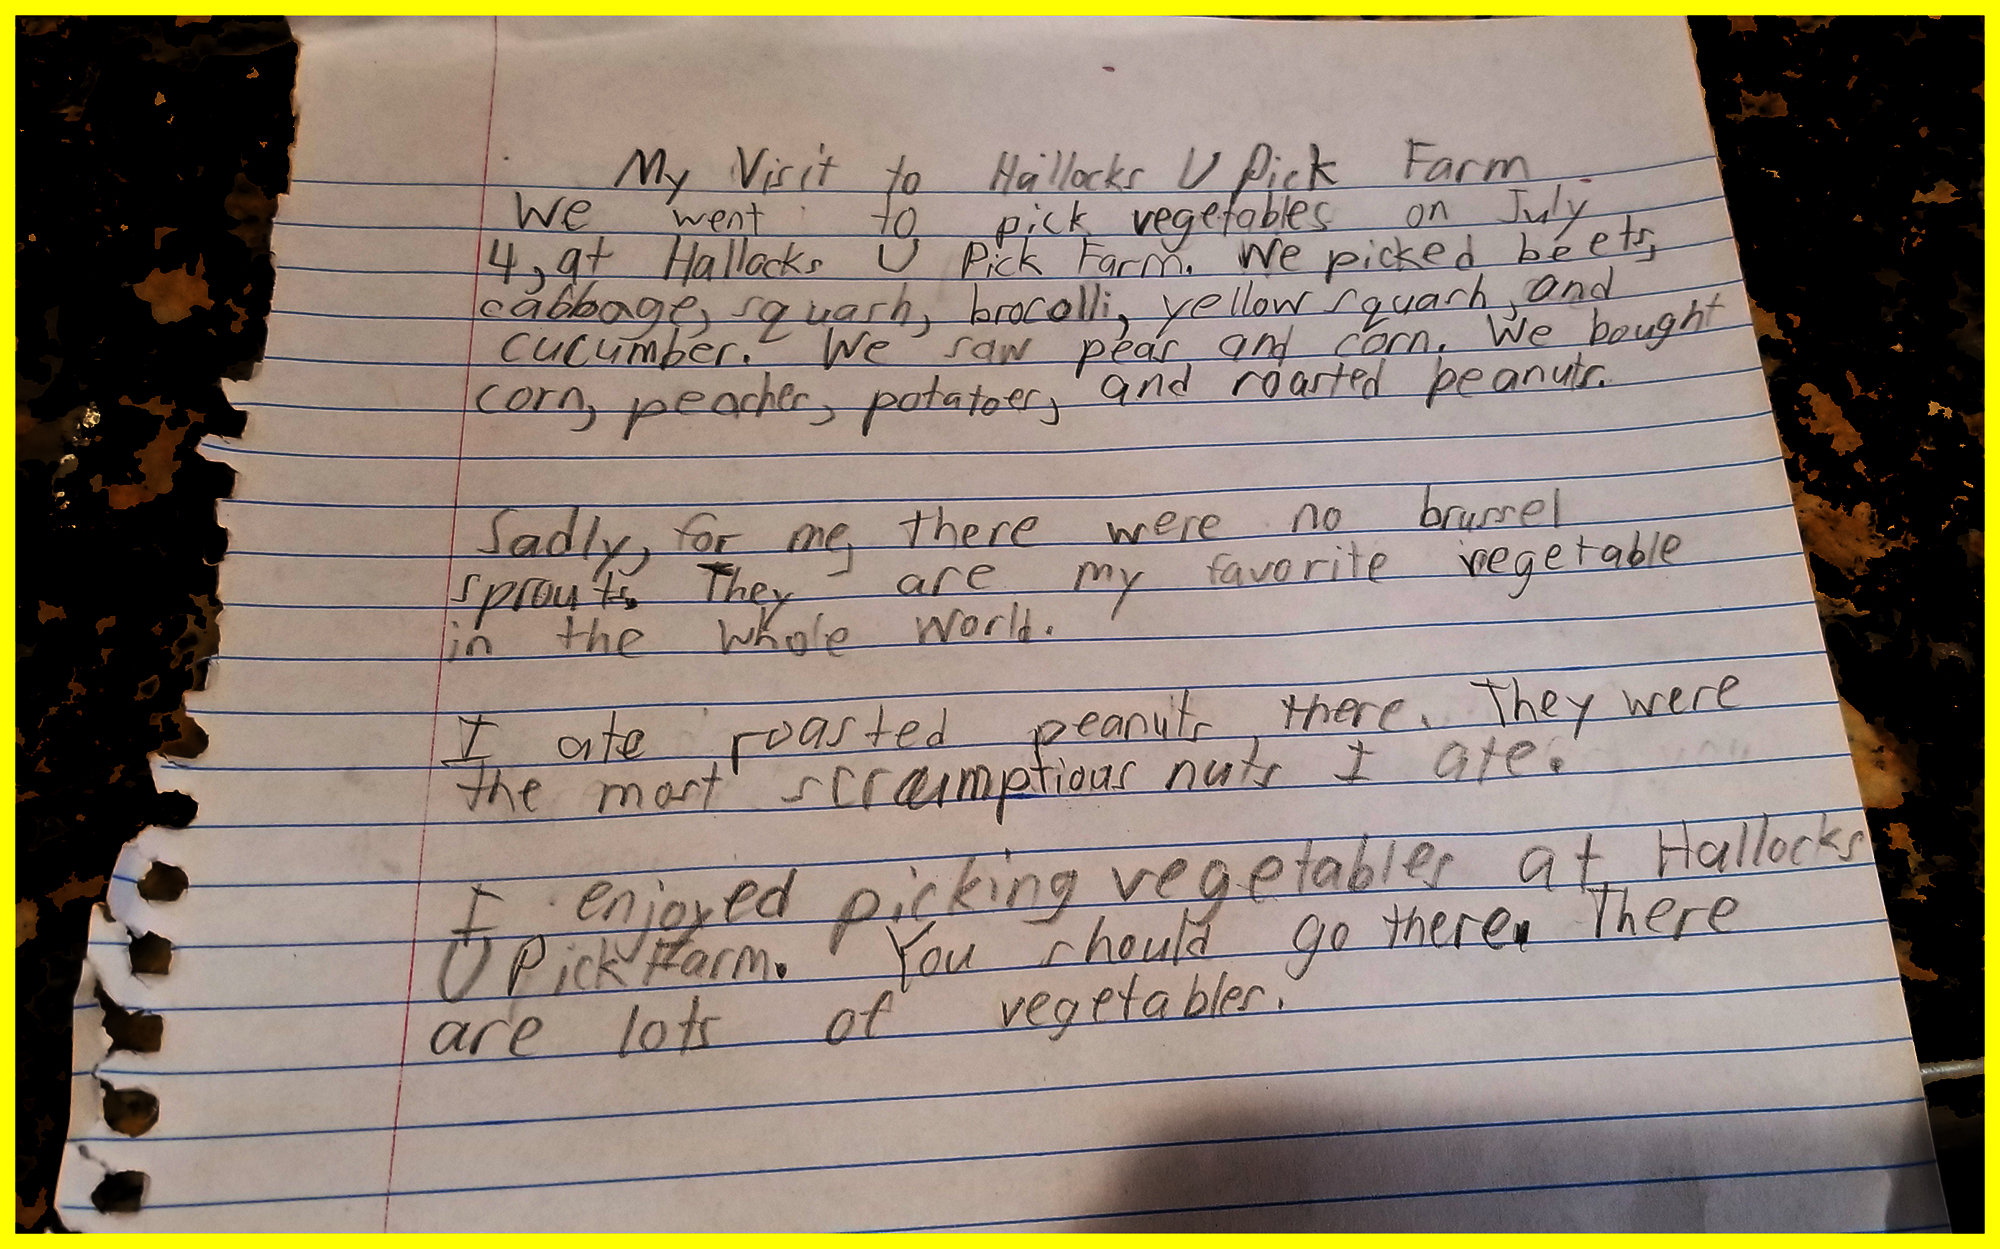 My Visit to Hallocks U Pick Farm
We went to pick vegetables on July
4, at Hallocks U Pick Farm. We picked beets,
cabbage, squash, brocolli, yellow squash, and
cucumber. We saw peas and corn. We bought
corn, peaches, potatoes, and roasted peanuts.
Sadly, for me, there were no brussel
sprouts. They are my favorite vegetable
in the whole world.
I ate roasted peanuts there. They were
the most scraumptious nuts I ate.
I enjoyed picking vegetables at Hallocks
U Pick Farm. You should go there. There
are lots of vegetables.